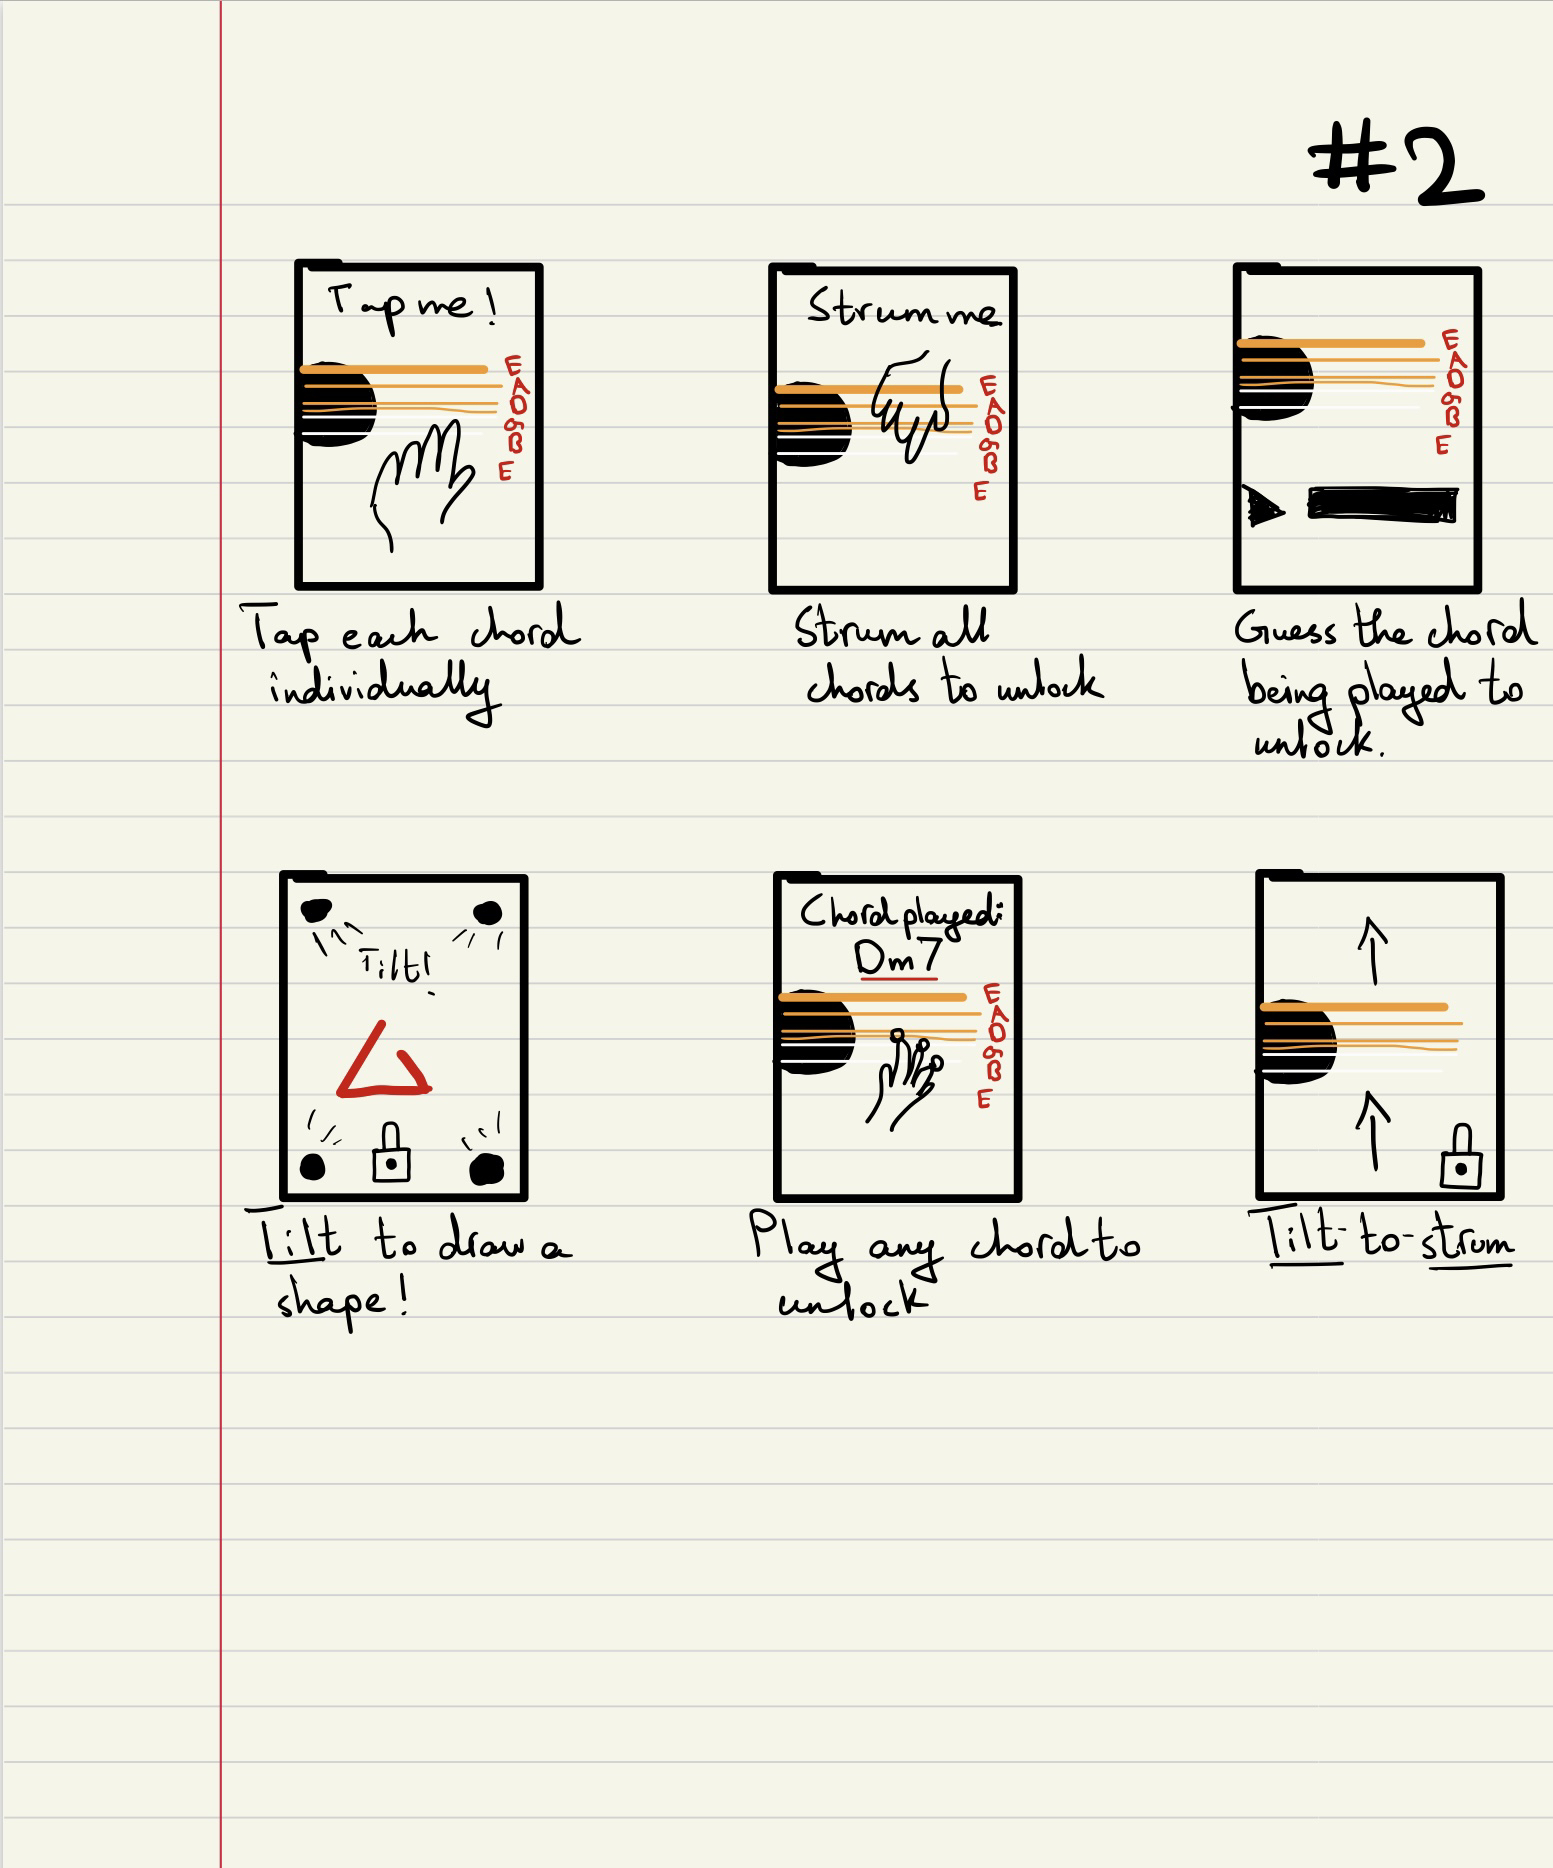 #2
Tap me!
E
A
D
G
B
E
Tap each chord
individually
Strum me
E
A
D
G
B
E
Strum all
chords to unlock
E
A
D
G
B
E
Guess the chord
being played to
unlock.
Tilt!
Tilt to draw a
shape!
Chord played:
Dm7
E
A
D
G
B
E
Play any chord to
unlock
Tilt-to-strum